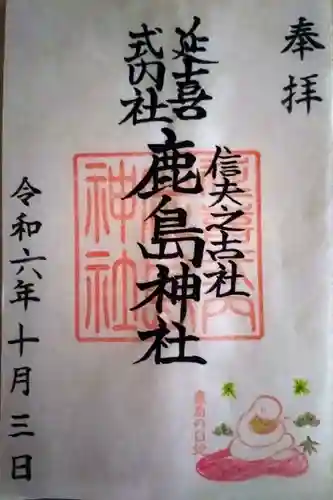 奉拝
延喜
式内社
信夫之古社
鹿島神社
令和六年十月三日